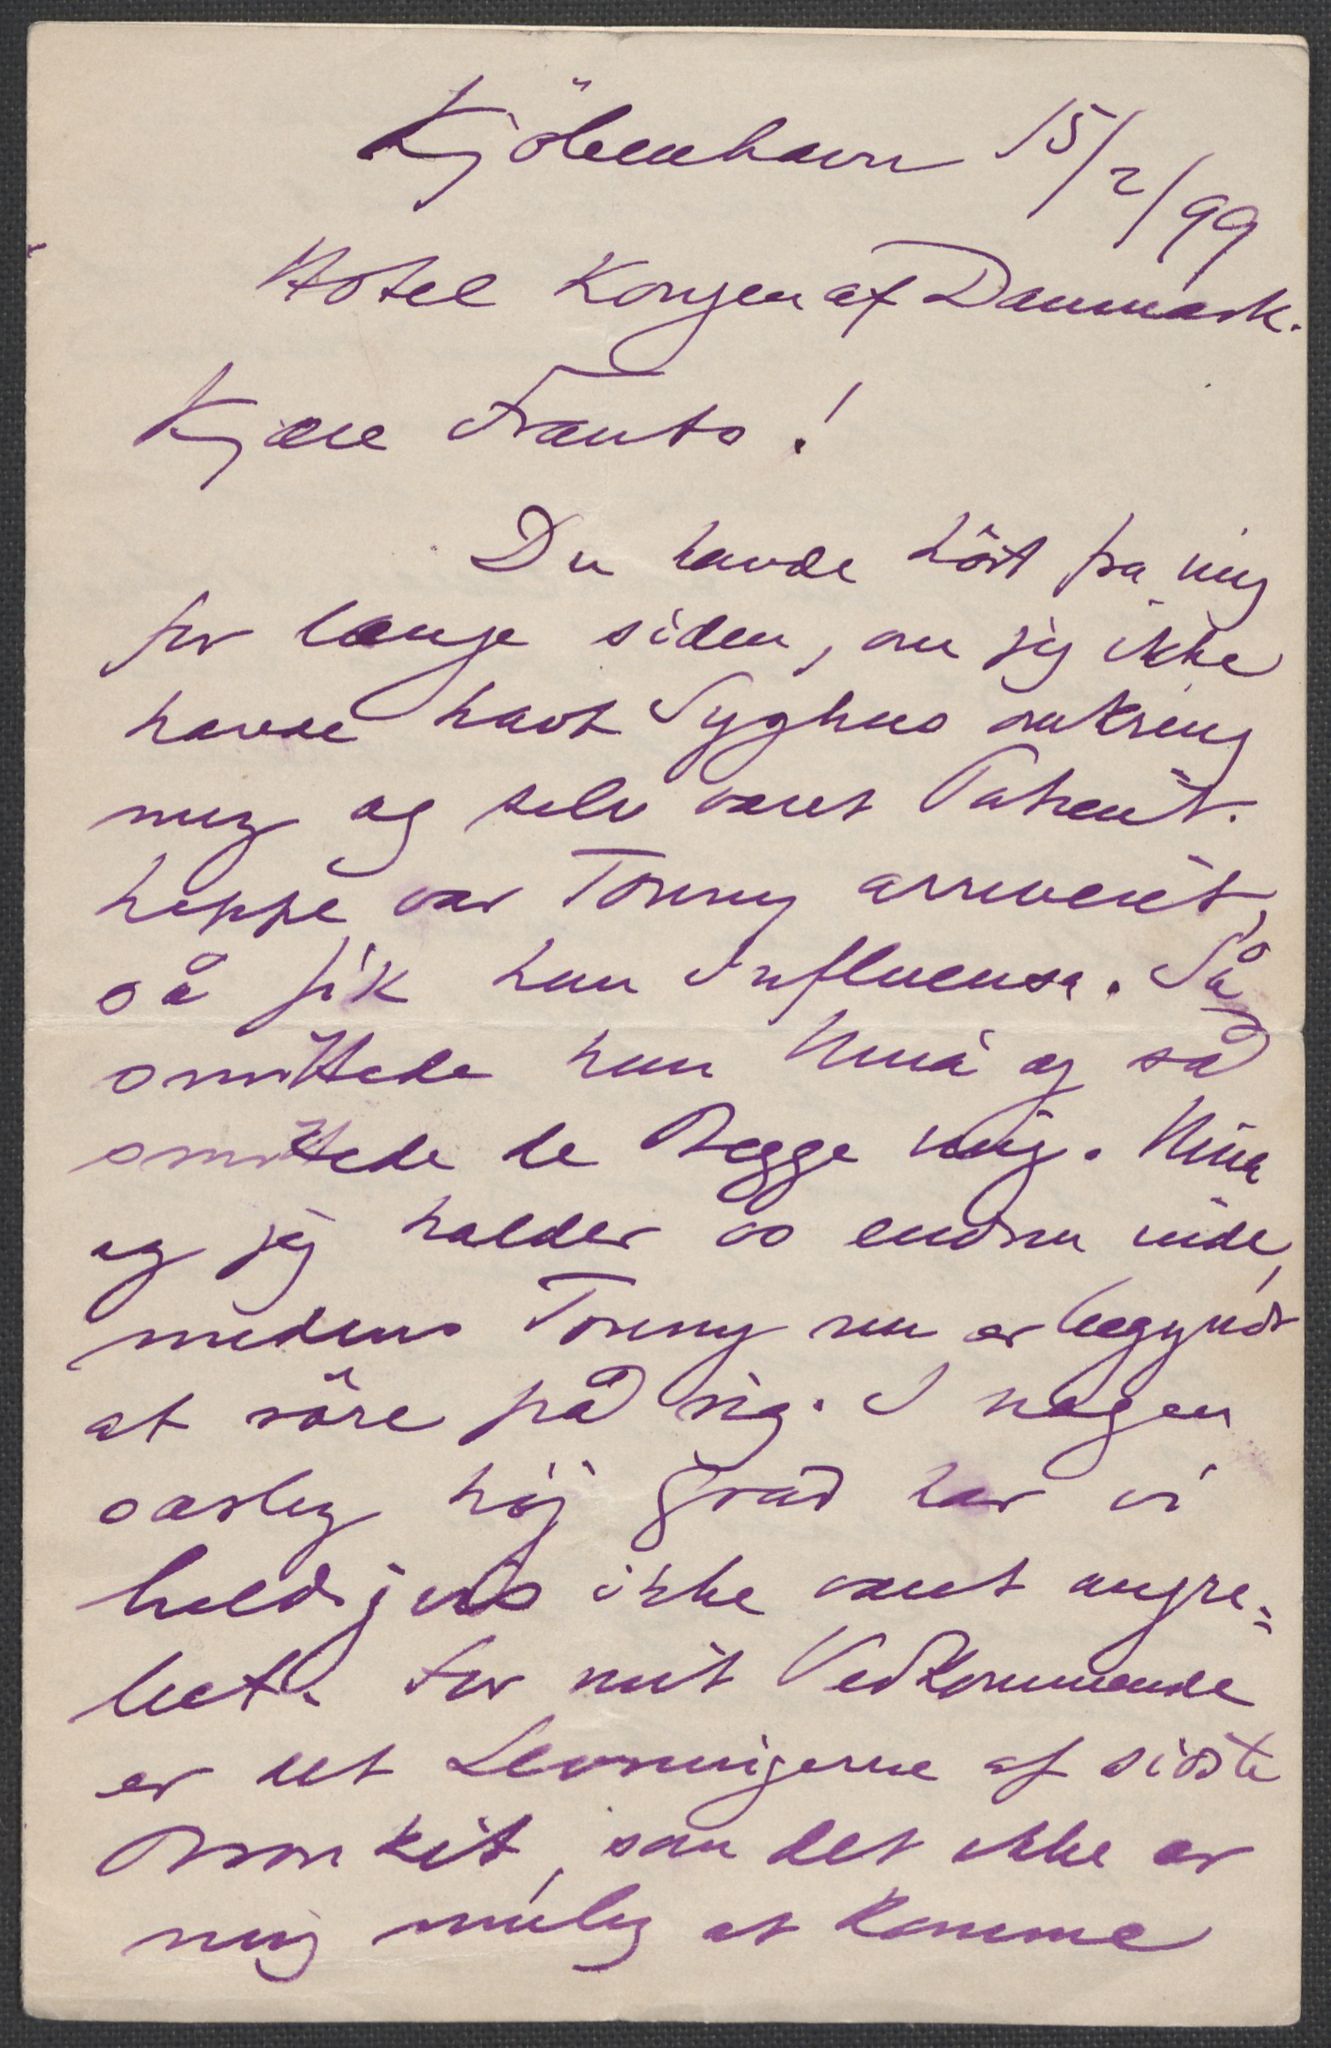 Kjöbenhavn 15/2/99
Hotel Kongen af Danmark.
Kjære Frants!
Du havde hört fra mig
for længe siden, om jeg ikke
havde havt Syghus omkring
mig og selv været Patient.
Neppe var Tonny arriveret,
så fik hun Influensa. Så
smittede hun Nina og så
smittede de Begge mig. Nina
og jeg holder os endnu inde,
medens Tonny nu er begyndt
at röre på sig. I nogen
særlig höj Grad har vi
heldigvis ikke været angre=
bet. For mit Vedkommende
er det Levningerne af sidste
Bronkit, som det ikke er
mig mulig at komme